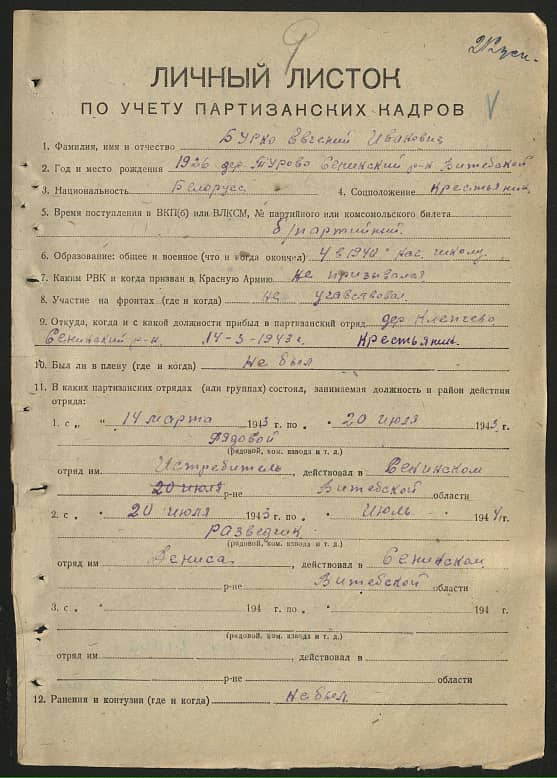 ЛИЧНЫЙ ЛИСТОК
ПО УЧЕТУ ПАРТИЗАНСКИХ КАДРОВ
1. Фамилия, имя и отчество Бурко Евгений Иванович
2. Год и место рождения 1926 дер. Турово Сенинский р-н Витебской
3. Национальность Белорусс 4. Соцположение Крестьянин
5. Время поступления в ВКП(б) или ВЛКСМ, № партийного или комсомольского билета
б/партийный.
6. Образование: общее и военное (что и когда окончил) 4 в 1940 нас. школу.
7. Каким РВК и когда призван в Красную Армию не призывался
8. Участие на фронтах (где и когда) не учавствовал.
9. Откуда, когда и с какой должности прибыл в партизанский отряд дер.
Сенинский р-н. 14-3-1943 г. Крестьянин.
10. Был ли в плену (где и когда) не был
11. В каких партизанских отрядах (или группах) состоял, занимаемая должность и район действия
отряда:
1. с „ 14 марта 1943 г. по „ 20 июля 1943 г.
рядовой
(рядовой, ком. взвода и т. д.)
отряд им. Истребитель, действовал в Сенинском
20 июля р-не Витебской области
2. с „ 20 июля 1943 г. по „ Июль 1944 г.
разведчик
(рядовой, ком. взвода и т. д.)
отряд им Дениса, действовал в Сенинском
р-не Витебской области
3. с „ 194 г. по „ 194 г.
(рядовой, ком. взвода и т. д.)
отряд им. действовал в
р-не области
12. Ранения и контузии (где и когда) не был.